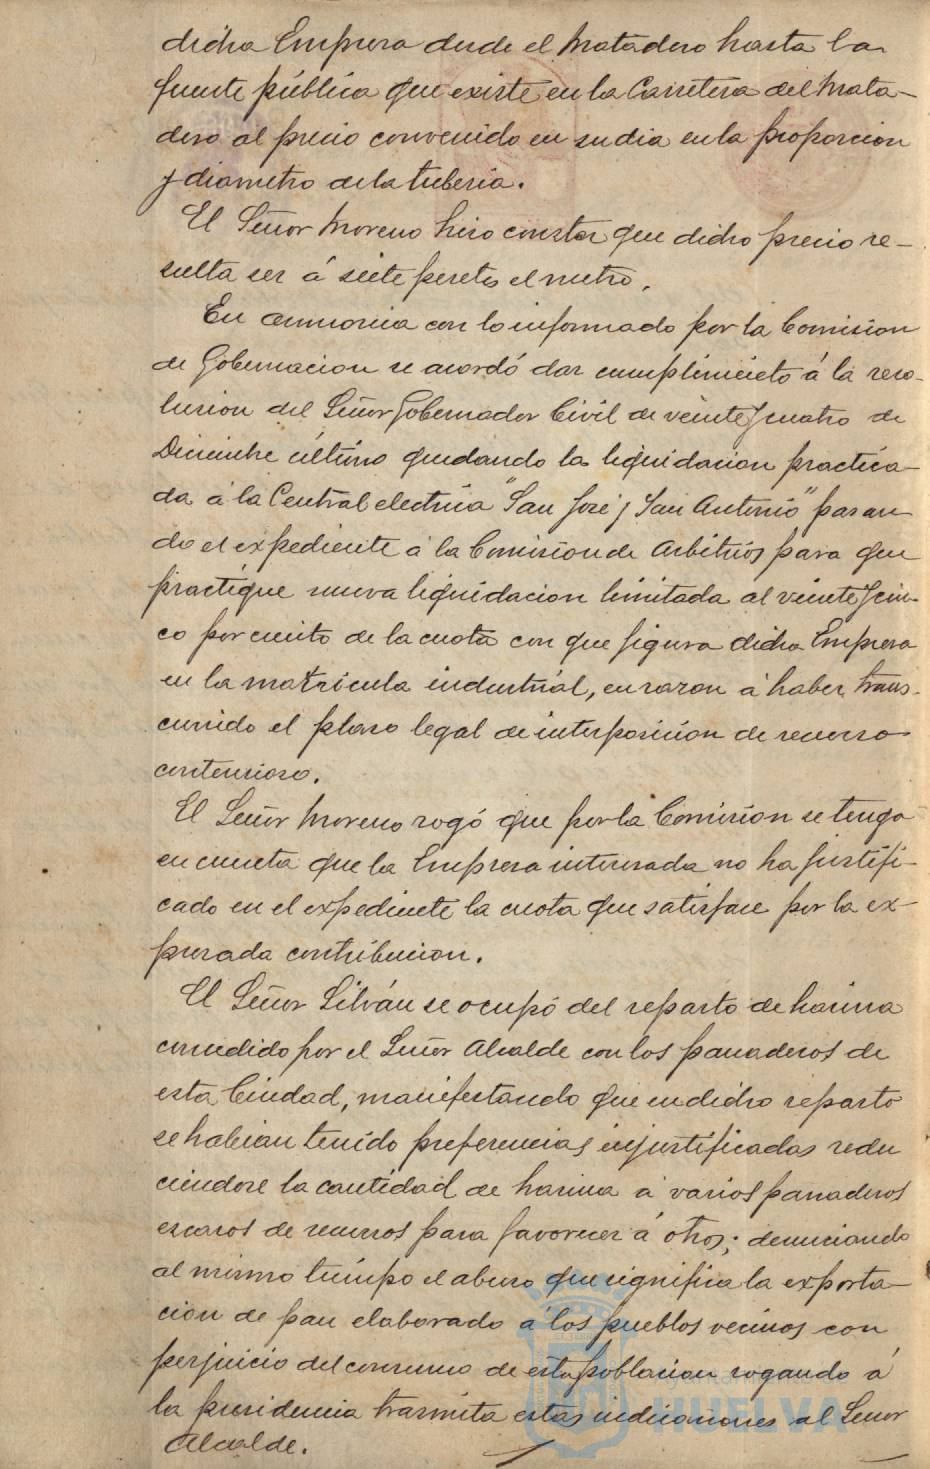 dicha Empresa desde el Matadero hasta la
fuente pública que existe en la Carretera del Mata-
dero al precio convenido en su dia en la proporcion
y diametro de la tuberia.
El Señor Moreno hiso constar que dicho precio re-
sulta ser á siete pesetas el metro.
En armonia con lo informado por la Comision
de Gobernacion se acordó dar cumplimiento á la reso-
lucion del Señor Gobernador Civil de veinte y cuatro de
Diciembre último quedando la liquidacion practica-
da á la Central electrica "San José y San Antonio" pasan-
do el expediente á la Comision de Arbitrios para que
practique nueva liquidacion limitada al veinte y cin-
co por ciento de la cuota con que figura dicha Empresa
en la matricula industrial, en razon á haber trans-
currido el plaso legal de interposicion de recurso
contencioso.
El Señor Moreno rogó que por la Comision se tenga
en cuenta que la Empresa interesada no ha justifi-
cado en el expediente la cuota que satisface por la ex-
presada contribucion.
El Señor Silván se ocupó del reparto de harina
concedido por el Señor Alcalde con los panaderos de
esta Ciudad, manifestando que en dicho reparto
se habian tenido preferencias injustificadas redu
ciendose la cantidad de harina á varios panaderos
escasos de recursos para favorecer á otros; denunciando
al mismo tiempo el abuso que significa la exporta-
cion de pan elaborado á los pueblos vecinos con
perjuicio del consumo de esta poblacion rogando á
la presidencia trasmita estas indicaciones al Señor
Alcalde.
HUELVA